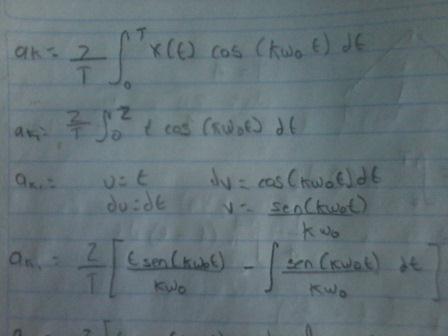 ak = 2/T ∫₀ᵀ x(t) cos (kω₀t) dt
ak₁ = 2/T ∫₀² t cos (kω₀t) dt
ak₁ = u = t dv = cos(kω₀t)dt
du = dt v = sen(kω₀t)/kω₀
ak₁ = 2/T [ t sen(kω₀t)/kω₀ - ∫ sen(kω₀t)/kω₀ dt ]